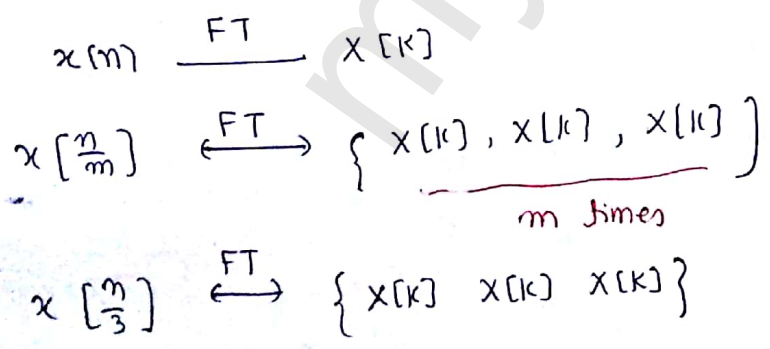 x[n] FT X[K]
x[n/m] FT { X[K], X[K], X[K] }
m times
x[n/3] FT { X[K] X[K] X[K] }